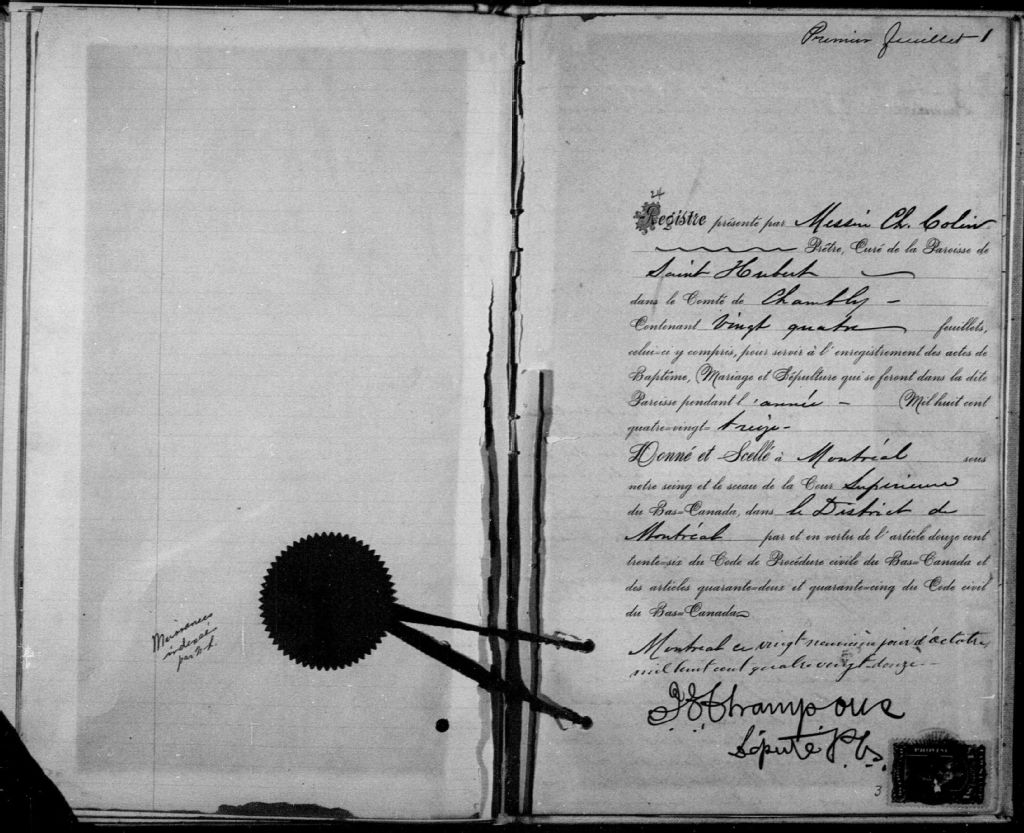 Naissances
indexées
par
Premier feuillet 1
24
Registre présenté par Messire Ch. Colin
Prêtre, Curé de la Paroisse de
Saint Hubert
dans le Comté de Chambly -
Contenant Vingt quatre feuillets,
celui-ci y compris, pour servir à l'enregistrement des actes de
Baptême, Mariage et Sépulture qui se feront dans la dite
Paroisse pendant l'année - Mil huit cent
quatre-vingt- treize-
Donné et Scellé à Montréal sous
notre seing et le sceau de la Cour Supérieure
du Bas-Canada, dans le District de
Montréal par et en vertu de l'article douze cent
trente-six du Code de Procédure civile du Bas-Canada et
des articles quarante-deux et quarante-cinq du Code civil
du Bas-Canada
Montréal ce vingt neuvième jour d'octobre
mil huit cent quatre vingt douze -
Champoux
Député P.C.S.
PROVINCE
3